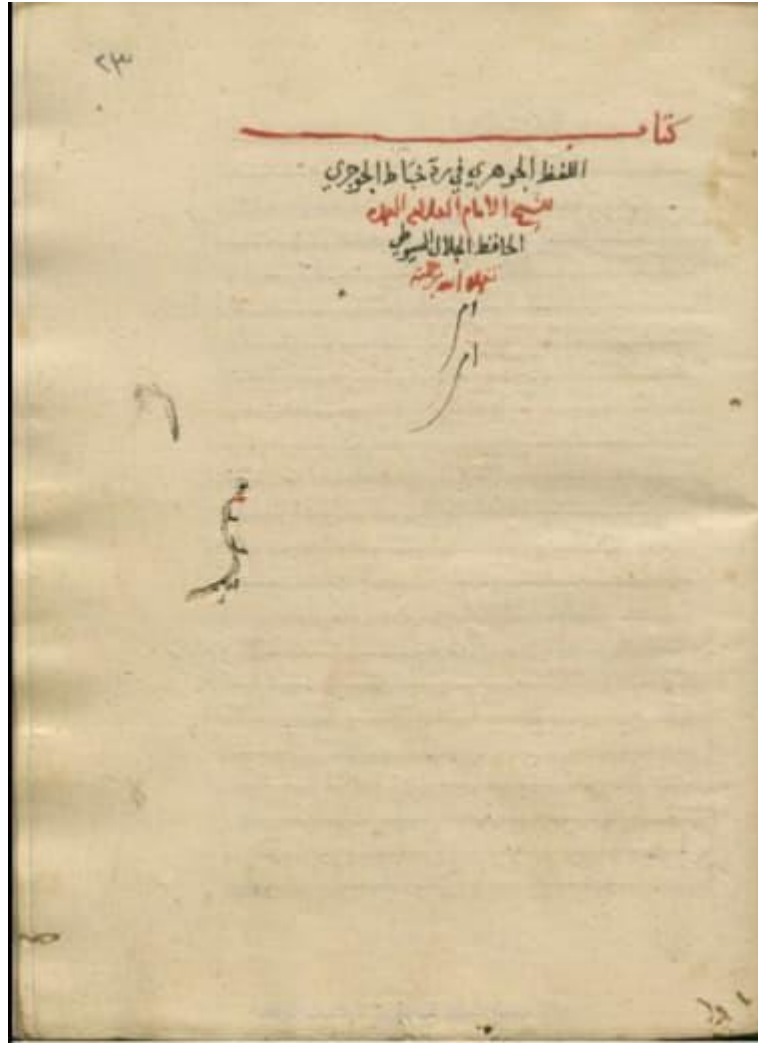 ٢٣
كتاب
اللفظ الجوهري في رد خباط الجوجري
للشيخ الامام العالم
الحافظ الجلال السيوطي
تغمده الله برحمته
ام
ام